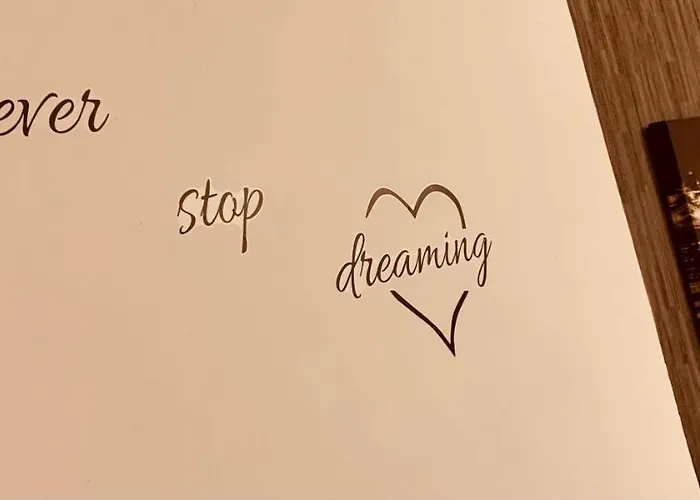 ever
stop
dreaming